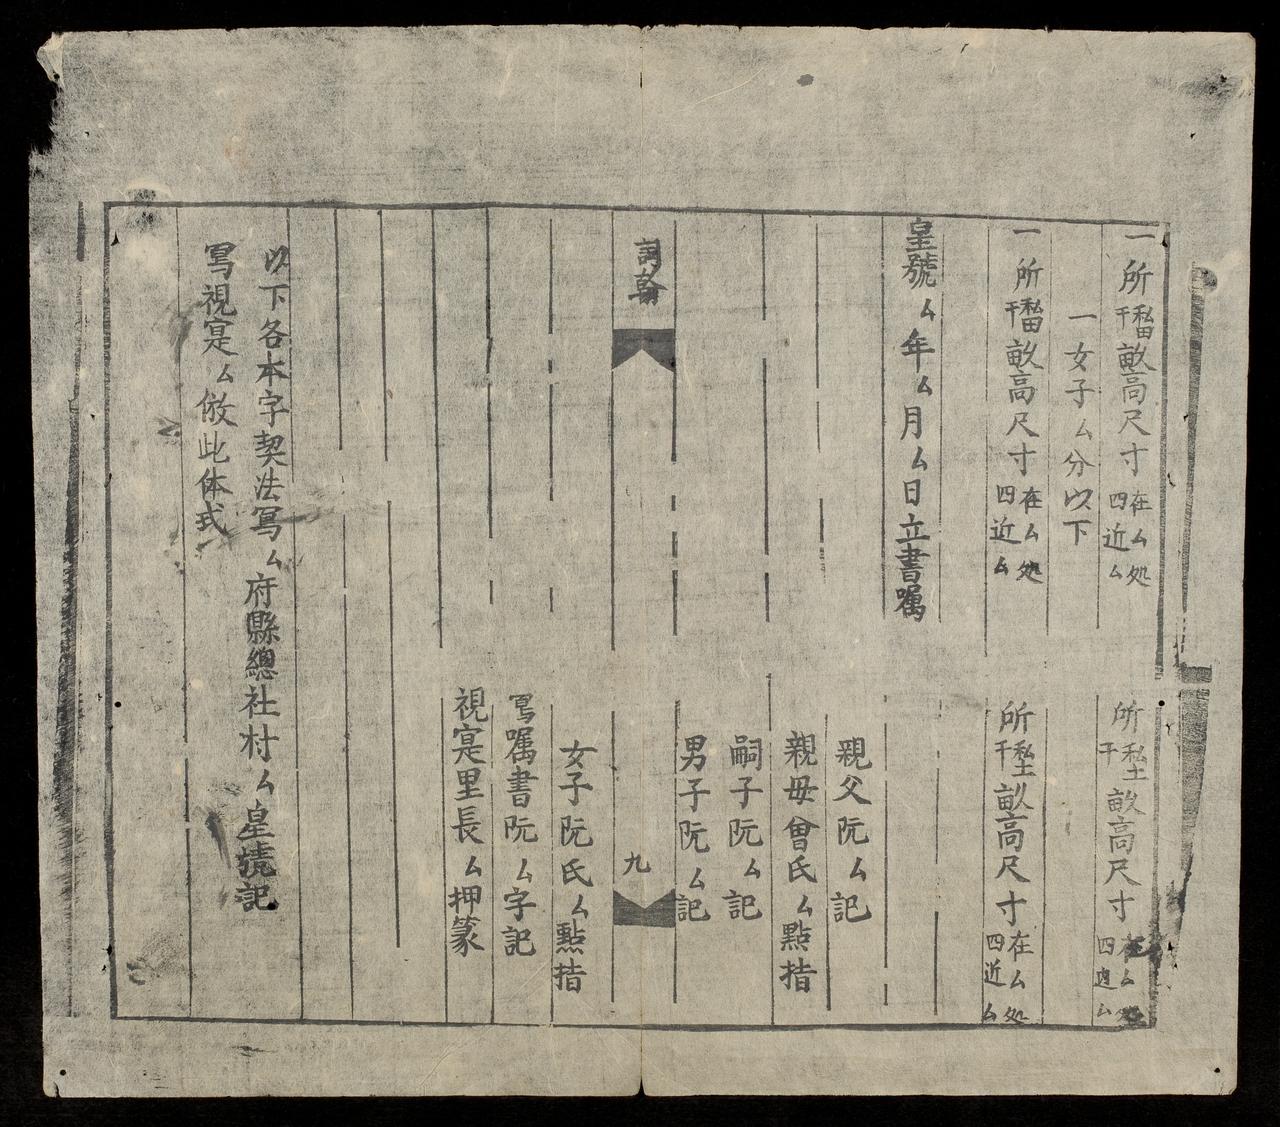 一所私田干畝高尺寸在厶処四近厶 所私土干畝高尺寸在厶処四近厶
一女子厶分以下
一所私田干畝高尺寸在厶処四近厶 所私土干畝高尺寸在厶処四近厶
皇號厶年厶月厶日立書嘱
親父阮厶記
親母曾氏厶點指
嗣子阮厶記
男子阮厶記
詞翰 九
女子阮氏厶點指
冩嘱書阮厶字記
視寔里長厶押篆
以下各本字契法冩厶府縣總社村厶皇號記
冩視寔厶倣此体式